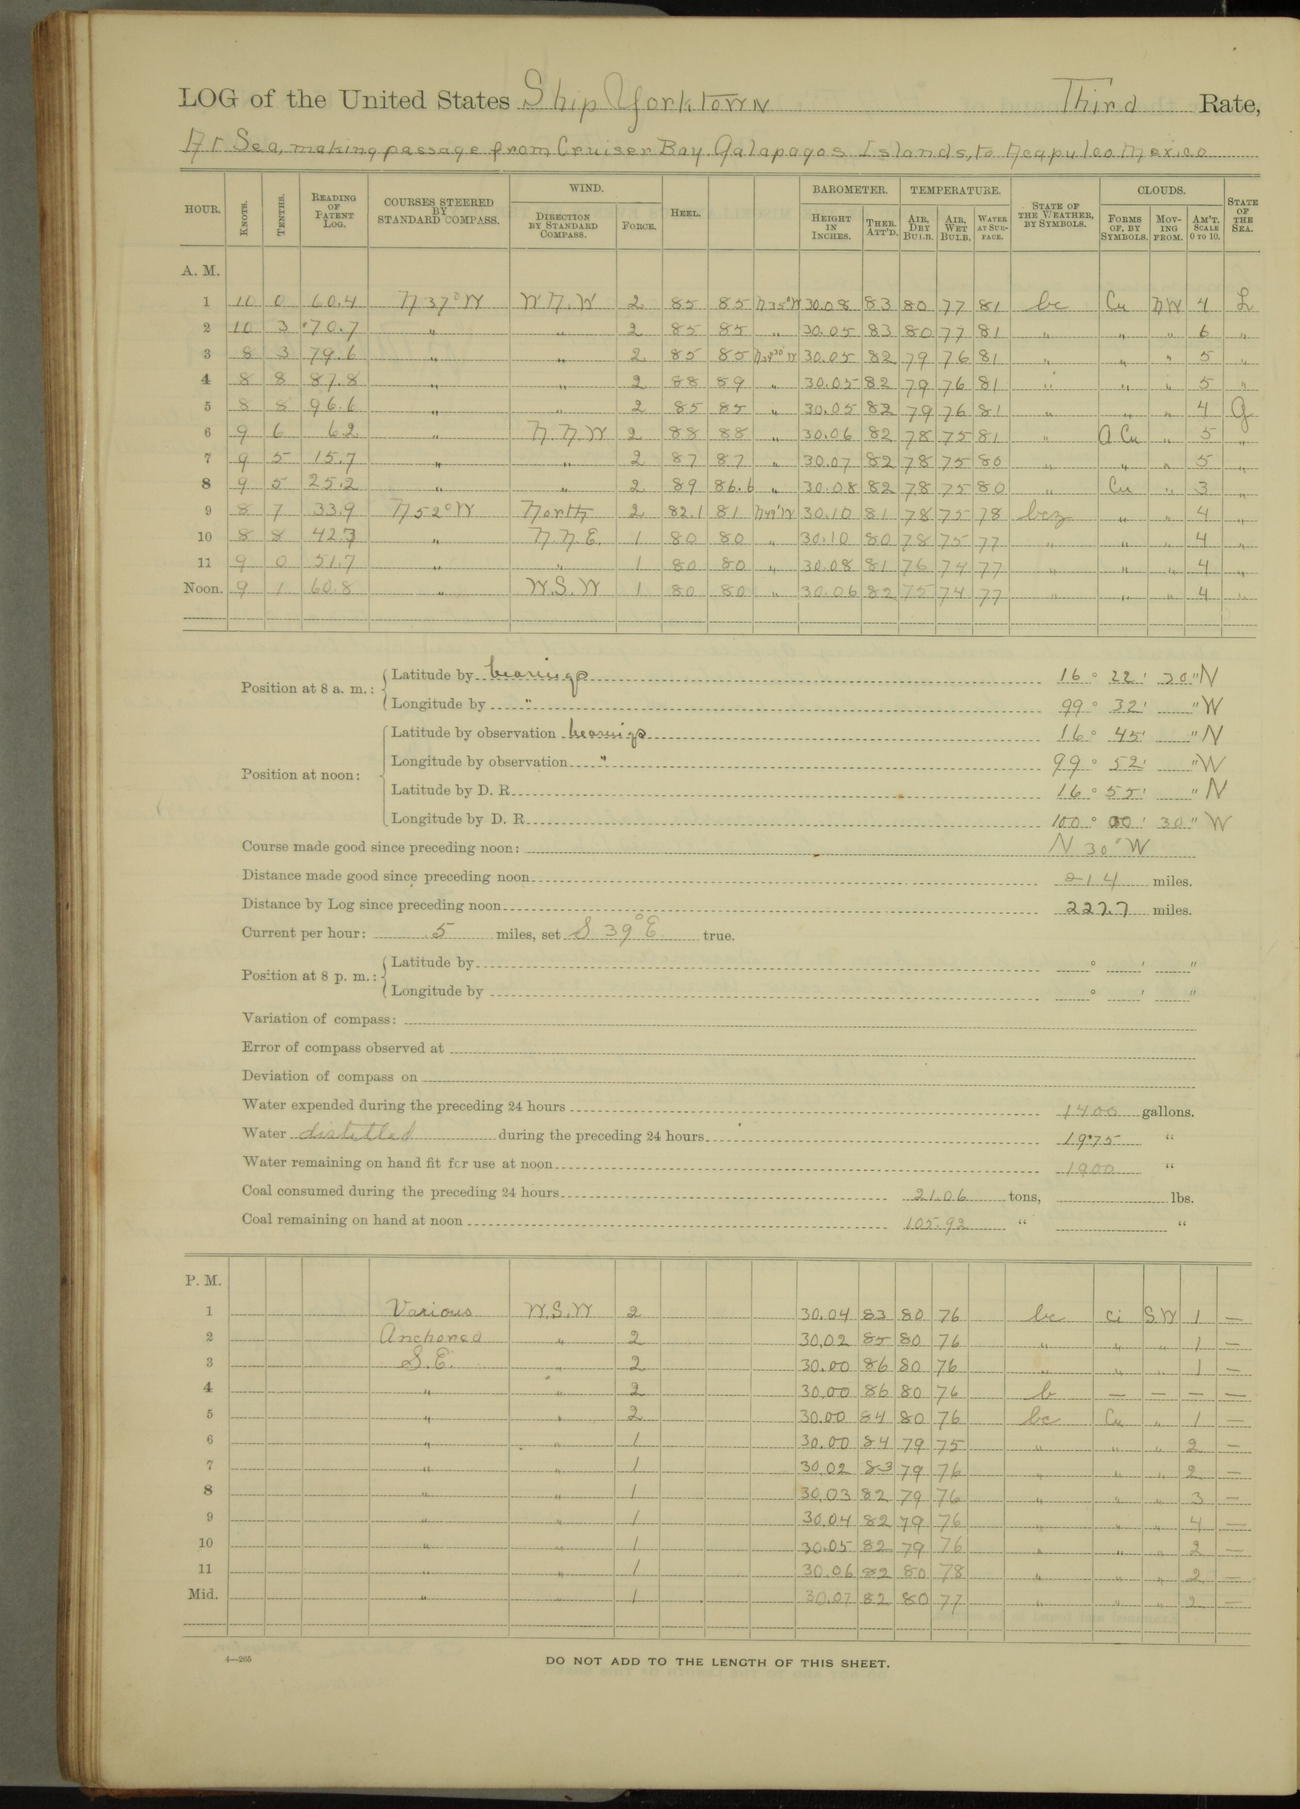 LOG of the United States Ship Yorktown Third Rate,
At Sea, making passage from Cruiser Bay Galapagos Islands, to Acapulco Mexico
HOUR. KNOTS. TENTHS. READING OF PATENT LOG. COURSES STEERED BY STANDARD COMPASS. WIND. DIRECTION BY STANDARD COMPASS. FORCE. HEEL. BAROMETER. HEIGHT IN INCHES. THER. ATT'D. TEMPERATURE. AIR, DRY BULB. AIR, WET BULB. WATER AT SURFACE. STATE OF THE WEATHER, BY SYMBOLS. CLOUDS. FORMS OF, BY SYMBOLS. MOVING FROM. AM'T. SCALE 0 TO 10. STATE OF THE SEA.
A. M.
1 10 0 60.4 N 37° W W N. W 2 85 85 N35°W 30.08 83 80 77 81 bc Cu NW 4 L
2 10 3 70.7 " " 2 85 85 " 30.05 83 80 77 81 " " " 6 "
3 8 3 79.6 " " 2 85 85 30.05 82 79 76 81 " " " 5 "
4 8 8 87.8 " " 2 88 89 " 30.05 82 79 76 81 " " " 5 "
5 8 8 96.6 " " 2 85 85 " 30.05 82 79 76 81 " " " 4 G
6 9 6 6.2 " N. N W 2 88 88 " 30.06 82 78 75 81 " A Cu " 5 "
7 9 5 15.7 " " 2 87 87 " 30.07 82 78 75 80 " " " 5 "
8 9 5 25.2 " " 2 89 86.6 " 30.08 82 78 75 80 " Cu " 3 "
9 8 7 33.9 N 52° W North 2 82.1 81 30.10 81 78 75 78 bcz " " 4 "
10 8 8 42.7 " N. N. E. 1 80 80 " 30.10 80 78 75 77 " " " 4 "
11 9 0 51.7 " " 1 80 80 " 30.08 81 76 74 77 " " " 4 "
Noon. 9 1 60.8 " W. S. W 1 80 80 " 30.06 82 75 74 77 " " " 4 "
Position at 8 a. m.: Latitude by bearings 16 ° 22 ' 30 " N
Longitude by " 99 ° 32 ' " W
Position at noon: Latitude by observation bearings 16 ° 45 ' " N
Longitude by observation " 99 ° 52 ' " W
Latitude by D. R. 16 ° 55 ' " N
Longitude by D. R. 100 ° 00 ' 30 " W
Course made good since preceding noon: N 30° W
Distance made good since preceding noon 214 miles.
Distance by Log since preceding noon 227.7 miles.
Current per hour: .5 miles, set S 39° E true.
Position at 8 p. m.: Latitude by ° ' "
Longitude by ° ' "
Variation of compass:
Error of compass observed at
Deviation of compass on
Water expended during the preceding 24 hours 1400 gallons.
Water distilled during the preceding 24 hours 1975 "
Water remaining on hand fit for use at noon 1900 "
Coal consumed during the preceding 24 hours 21.06 tons, lbs.
Coal remaining on hand at noon 105.92 " "
P. M.
1 Various W. S. W 2 30.04 83 80 76 bc Ci S W 1 —
2 Anchored " 2 30.02 85 80 76 " " " 1 —
3 S. E. " 2 30.00 86 80 76 " " " 1 —
4 " " 2 30.00 86 80 76 b — — — —
5 " " 2 30.00 84 80 76 bc Cu " 1 —
6 " " 1 30.00 84 79 75 " " " 2 —
7 " " 1 30.02 83 79 76 " " " 2 —
8 " " 1 30.03 82 79 76 " " " 3 —
9 " " 1 30.04 82 79 76 " " " 4 —
10 " " 1 30.05 82 79 76 " " " 2 —
11 " " 1 30.06 82 80 78 " " " 2 —
Mid. " " 1 30.07 82 80 77 " " " 2 —
4—265
DO NOT ADD TO THE LENGTH OF THIS SHEET.